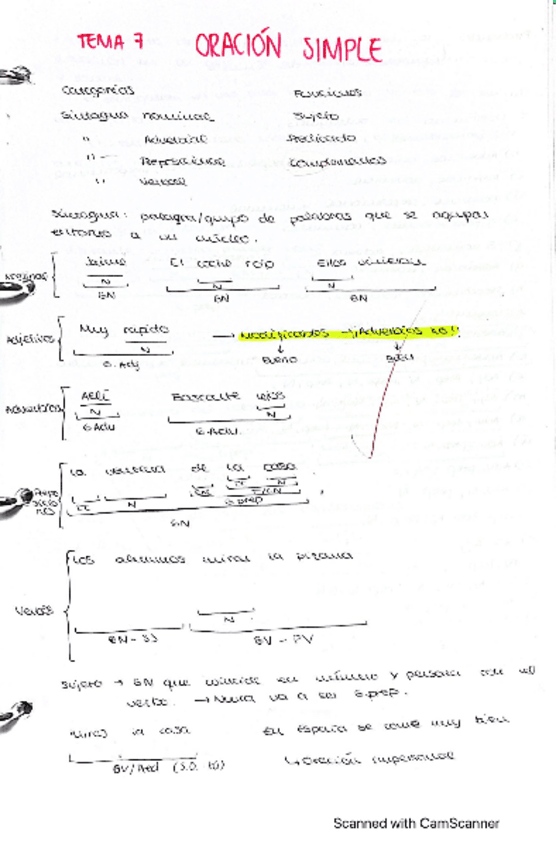 TEMA 7 ORACIÓN SIMPLE
Categorías Funciones
Sintagma nominal Sujeto
" Adverbial Predicado
" Preposicional Complementos
" Verbal
Sintagma: palabra/grupo de palabras que se agrupan
entorno a un núcleo.
Jaime El coche rojo Ellos vinieron
N N N
SN SN SN
Adjetivos Muy rápido → Modificados → ¡Adverbios no!
N Bueno Bien
S.Adj
Adverbios Allí Bastante lejos
N N
S.Adv S.Adv.
La ventana de la casa
N N
S/SN
S.prep
SN
Verbos Los alumnos miran la pizarra
N
SN-SJ SV-PV
Sujeto → SN que coincide en número y persona con el
verbo. → Nunca va a ser S.prep.
la casa En España se come muy bien
SV/Pred (S.O. tú) ↳ Oración impersonal
Scanned with CamScanner